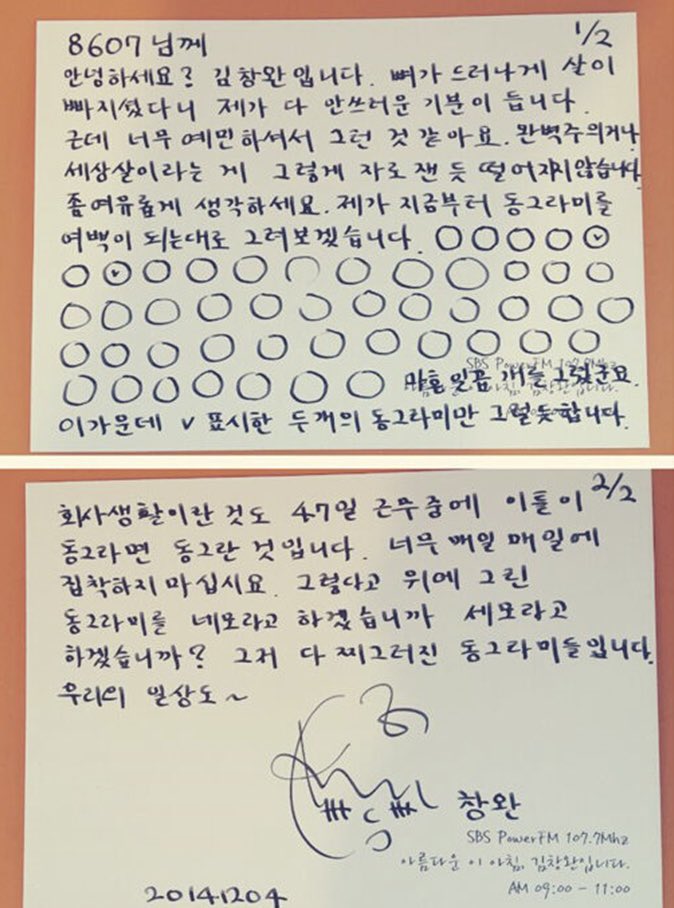 1/2
8607님께
안녕하세요? 김창완입니다. 뼈가 드러나게 살이
빠지셨다니 제가 다 안쓰러운 기분이 듭니다.
근데 너무 예민하셔서 그런 것 같아요. 완벽주의거나
세상살이라는 게 그렇게 자로 잰 듯 떨어지지 않습니다.
좀 여유롭게 생각하세요. 제가 지금부터 동그라미를
여백이 되는대로 그려보겠습니다.
SBS PowerFM 107.7Mhz
마흔 일곱 개를 그렸군요.
이 가운데 v 표시한 두개의 동그라미만 그럴듯합니다.
2/2
회사생활이란 것도 47일 근무중에 이틀이
동그라면 동그란 것입니다. 너무 매일 매일에
집착하지 마십시요. 그렇다고 위에 그린
동그라미를 네모라고 하겠습니까 세모라고
하겠습니까? 그저 다 찌그러진 동그라미들입니다.
우리의 일상도~
창완
SBS PowerFM 107.7Mhz
아름다운 이 아침, 김창완입니다.
AM 09:00 - 11:00
20141204